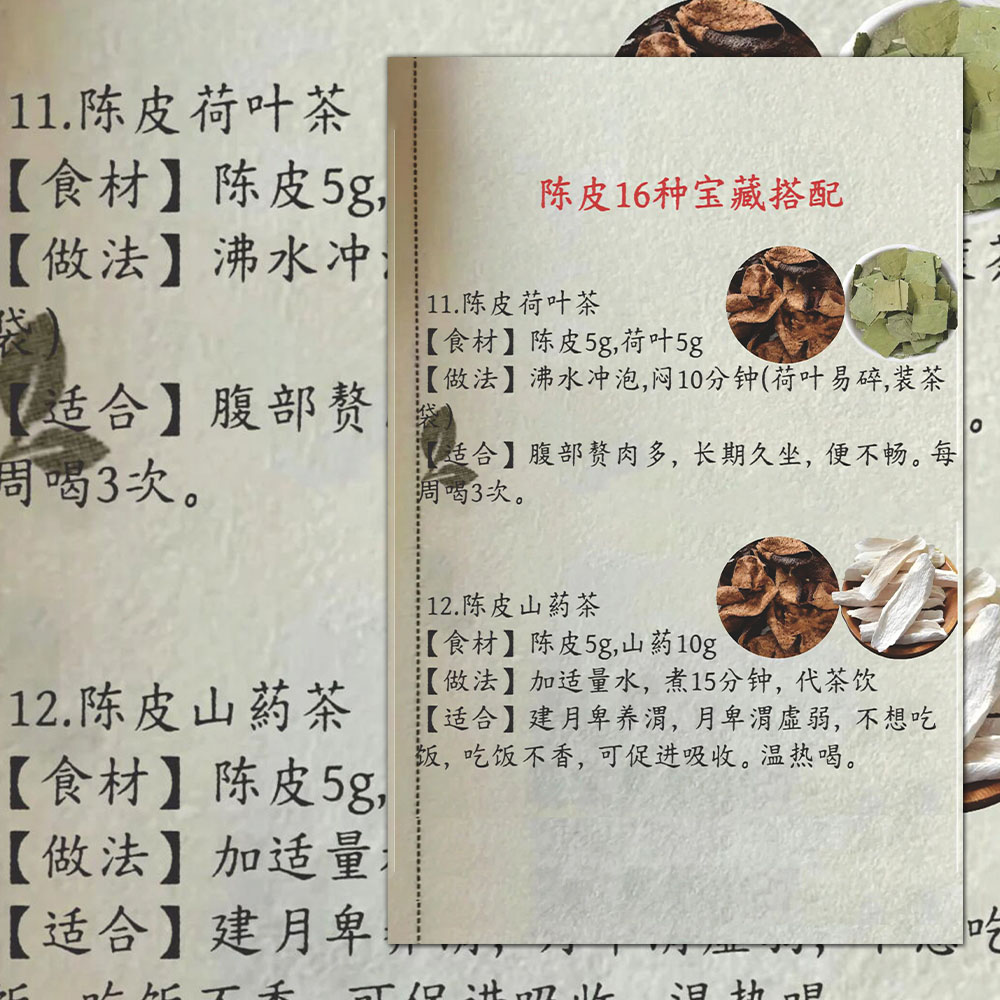 11.陈皮荷叶茶
【食材】陈皮5g,
【做法】沸水冲
袋)
【适合】腹部赘
周喝3次。
12.陈皮山葯茶
【食材】陈皮5g,
【做法】加适量
【适合】建月卑
陈皮16种宝藏搭配
11.陈皮荷叶茶
【食材】陈皮5g,荷叶5g
【做法】沸水冲泡,闷10分钟(荷叶易碎,装茶
袋)
【适合】腹部赘肉多, 长期久坐, 便不畅。每
周喝3次。
12.陈皮山葯茶
【食材】陈皮5g,山葯10g
【做法】加适量水, 煮15分钟, 代茶饮
【适合】建月卑养渭, 月卑渭虚弱, 不想吃
饭, 吃饭不香, 可促进吸收。温热喝。